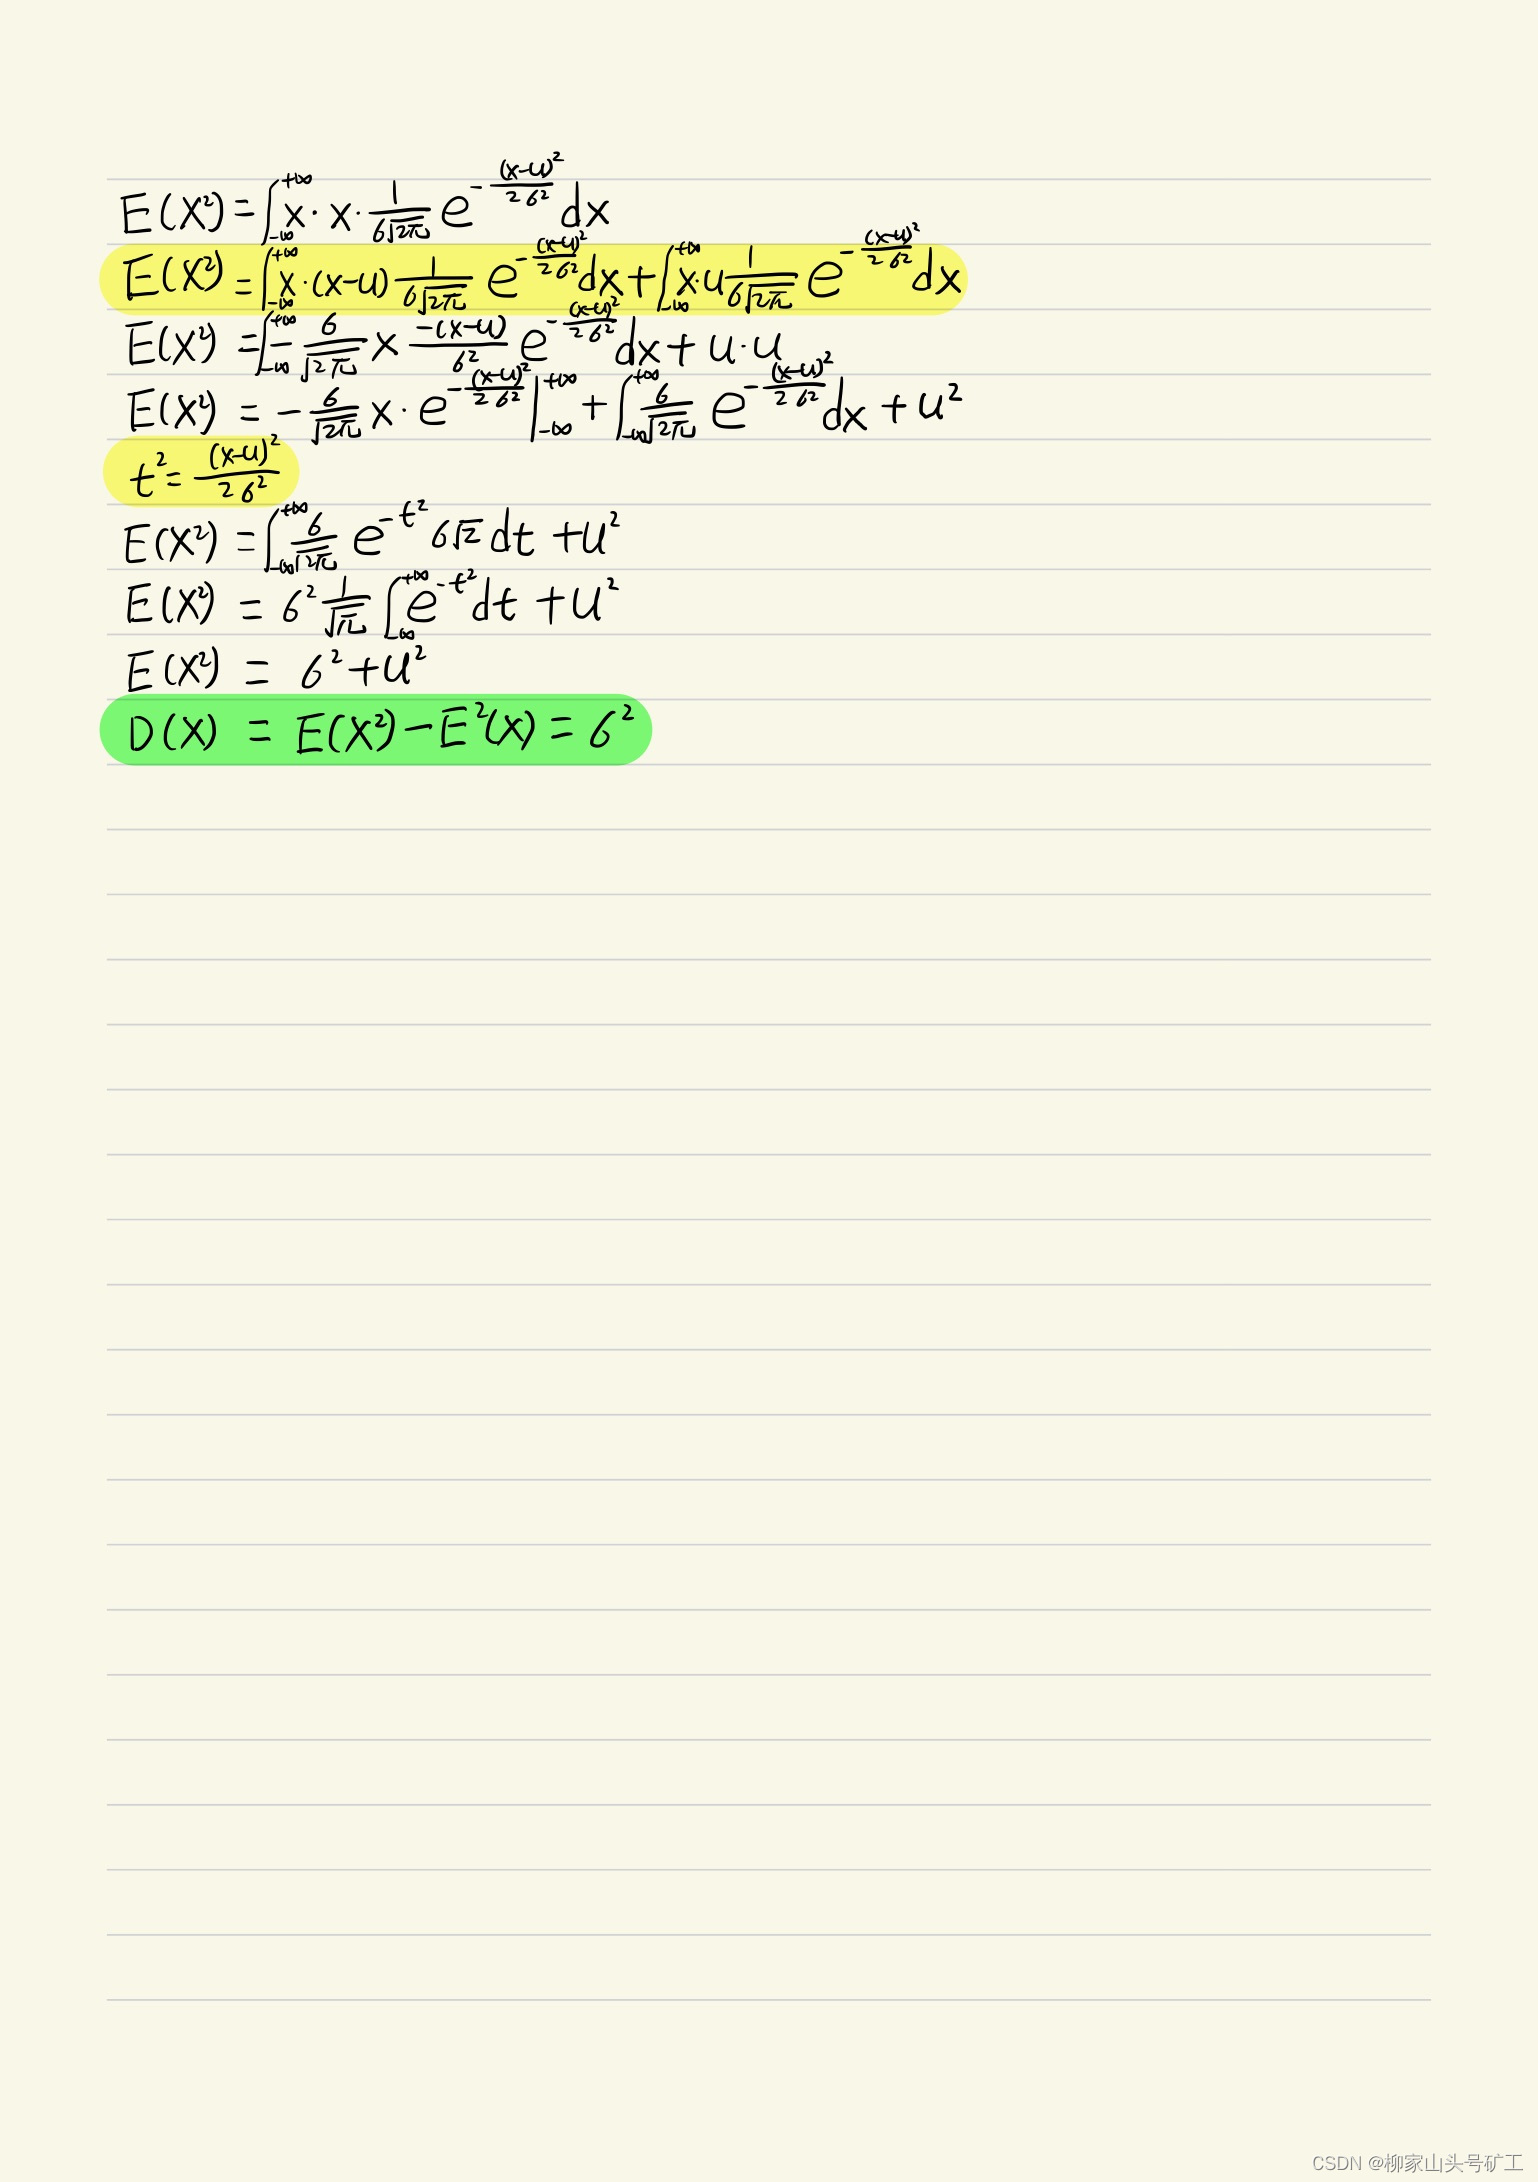 E(X²) = ∫_{-∞}^{+∞} x · x · \frac{1}{6\sqrt{2π}} e^{-\frac{(x-u)^2}{2 6^2}} dx
E(X²) = ∫_{-∞}^{+∞} x · (x-u) \frac{1}{6\sqrt{2π}} e^{-\frac{(x-u)^2}{2 6^2}} dx + ∫_{-∞}^{+∞} x · u \frac{1}{6\sqrt{2π}} e^{-\frac{(x-u)^2}{2 6^2}} dx
E(X²) = ∫_{-∞}^{+∞} - \frac{6}{\sqrt{2π}} x \frac{-(x-u)}{6^2} e^{-\frac{(x-u)^2}{2 6^2}} dx + u · u
E(X²) = - \frac{6}{\sqrt{2π}} x · e^{-\frac{(x-u)^2}{2 6^2}} |_{-∞}^{+∞} + ∫_{-∞}^{+∞} \frac{6}{\sqrt{2π}} e^{-\frac{(x-u)^2}{2 6^2}} dx + u²
t² = \frac{(x-u)^2}{2 6^2}
E(X²) = ∫_{-∞}^{+∞} \frac{6}{\sqrt{2π}} e^{-t^2} 6\sqrt{2} dt + u²
E(X²) = 6² \frac{1}{\sqrt{π}} ∫_{-∞}^{+∞} e^{-t^2} dt + u²
E(X²) = 6² + u²
D(X) = E(X²) - E²(X) = 6²
CSDN @柳家山头号矿工